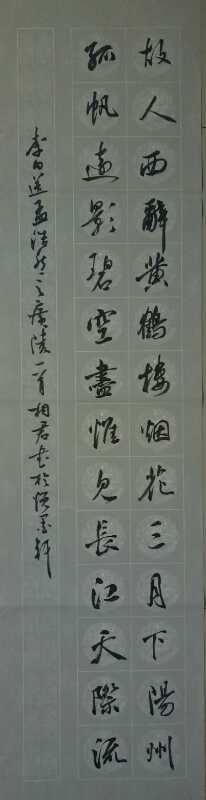 故人西辭黃鶴樓烟花三月下陽州
孤帆遠影碧空盡惟見長江天際流
李白送孟浩然之廣陵一首 相君書於 墨軒